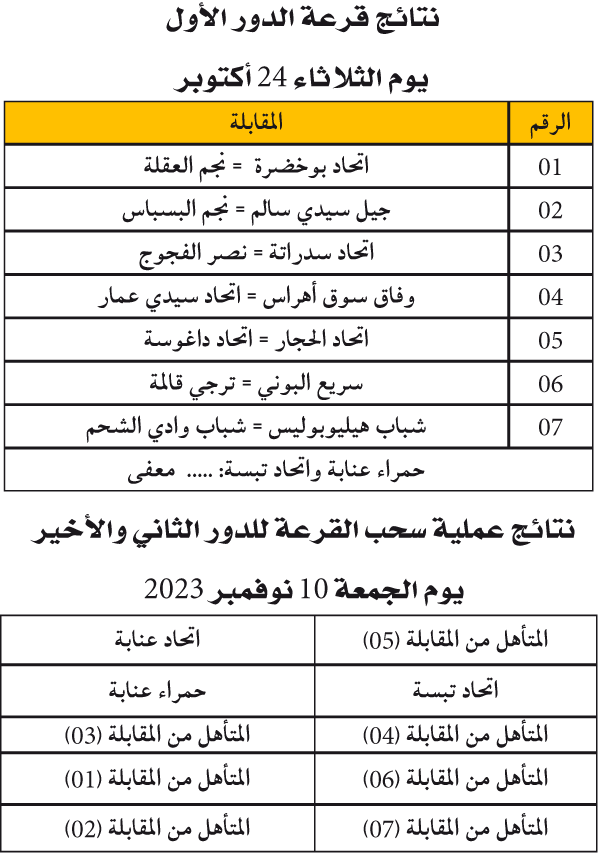 نتائج قرعة الدور الأول
يوم الثلاثاء 24 أكتوبر
الرقم المقابلة
01 اتحاد بوخضرة = نجم العقلة
02 جيل سيدي سالم = نجم البسباس
03 اتحاد سدراتة = نصر الفجوج
04 وفاق سوق أهراس = اتحاد سيدي عمار
05 اتحاد الحجار = اتحاد داغوسة
06 سريع البوني = ترجي قالمة
07 شباب هيليوبوليس = شباب وادي الشحم
حمراء عنابة واتحاد تبسة: ..... معفى
نتائج عملية سحب القرعة للدور الثاني والأخير
يوم الجمعة 10 نوفمبر 2023
المتأهل من المقابلة (05) اتحاد عنابة
اتحاد تبسة حمراء عنابة
المتأهل من المقابلة (04) المتأهل من المقابلة (03)
المتأهل من المقابلة (06) المتأهل من المقابلة (01)
المتأهل من المقابلة (07) المتأهل من المقابلة (02)